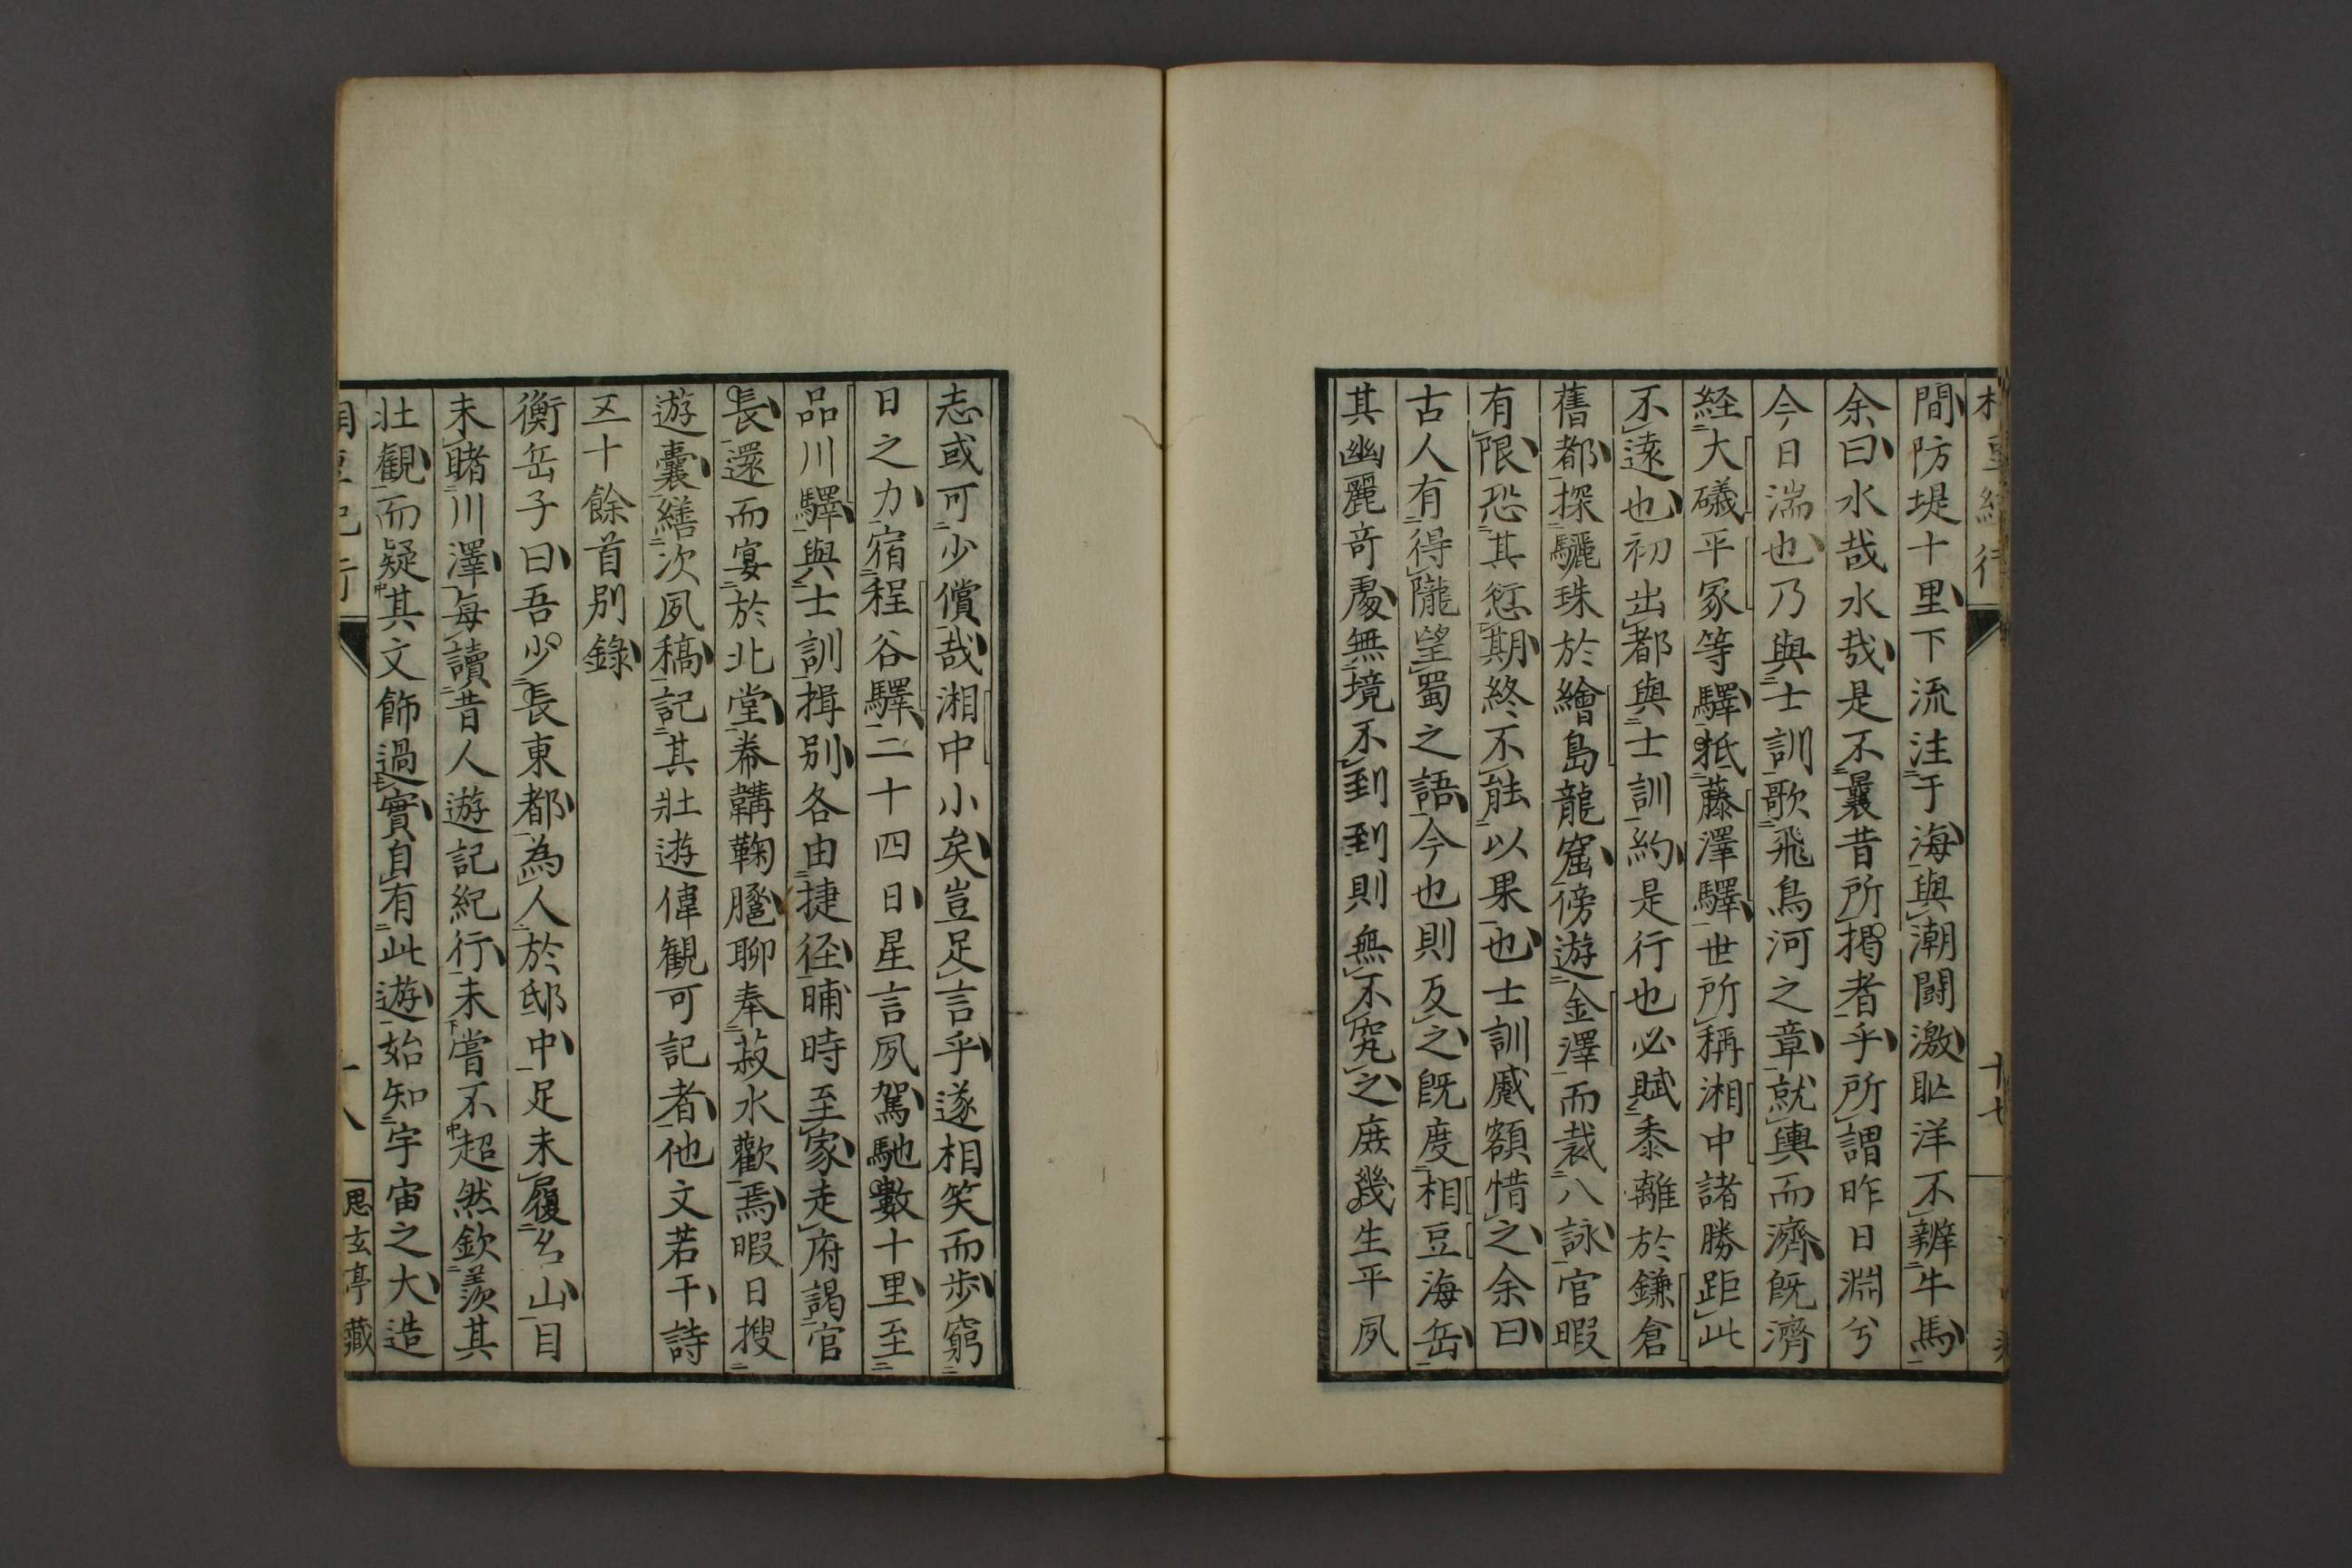 間防堤十里下流注于海與潮闘激𦣱洋不辨牛馬
余曰水哉水哉是不曩昔所掲者乎所謂昨日淵兮
今日湍也乃與士訓歌飛鳥河之章就輿而濟既濟
経大礒平冢等驛抵藤澤驛世所稱湘中諸勝距此
不遠也初出都與士訓約是行也必賦黍離於鎌倉
舊都探驪珠於繪島龍窟傍遊金澤而裁八詠官暇
有限恐其愆期終不能以果也士訓蹙額惜之余曰
古人有得隴望蜀之語今也則反之既度相豆海岳
其幽麗奇處無境不到到則無不究之庶幾生平夙
十七
志或可少償哉湘中小矣豈足言乎遂相笑而歩窮
日之力宿程谷驛二十四日星言夙駕馳數十里至
品川驛與士訓揖別各由捷径晡時至家走府謁官
長還而宴於北堂希韝鞠䐒聊奉菽水歡焉暇日搜
遊嚢繕次夙稿記其壮遊偉観可記者他文若干詩
五十餘首別錄
衡岳子曰吾少長東都為人於邸中足未履名山目
未睹川澤每讀昔人遊記紀行未嘗不超然欽羨其
壮観而疑其文飾過實自有此遊始知宇宙之大造
思玄亭藏